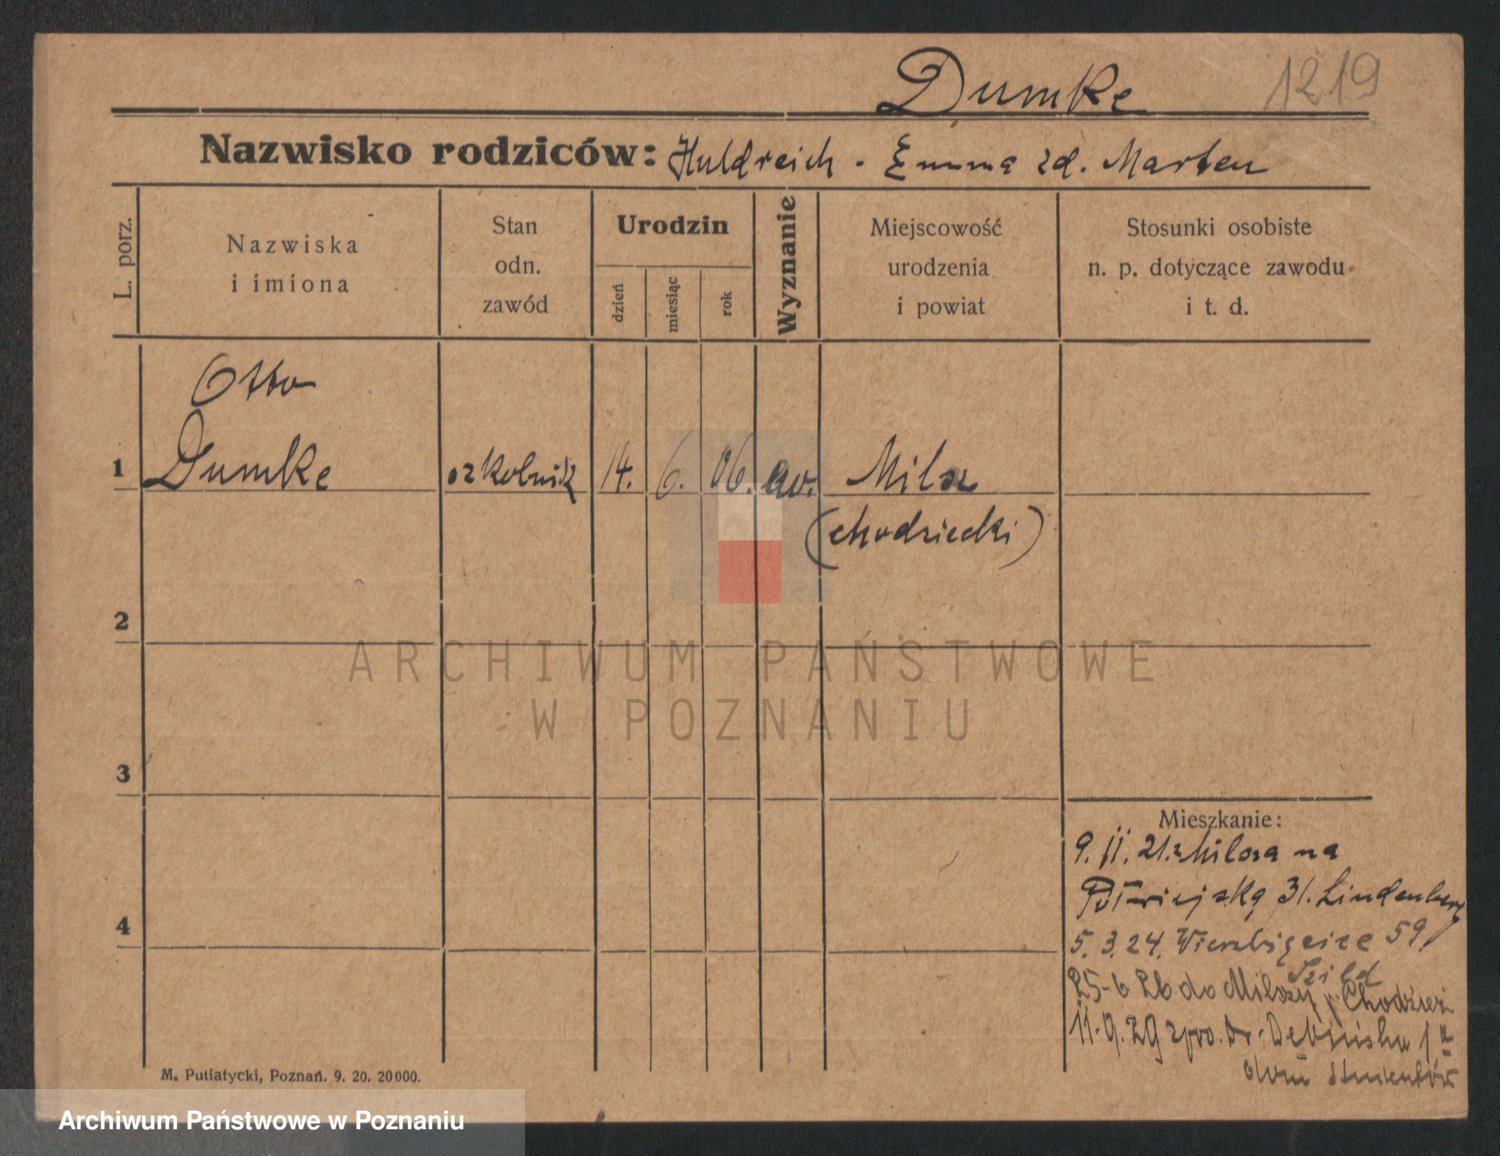 Dumke 1219
Nazwisko rodziców: Huldreich - Emma zd. Marten
L. porz.
Nazwiska
i imiona
Stan
odn.
zawód
Urodzin
dzień
miesiąc
rok
Wyznanie
Miejscowość
urodzenia
i powiat
Stosunki osobiste
n. p. dotyczące zawodu
i t. d.
Otto
1 Dumke szkolnik 14. 6. 06. ew. Milsz
(chodzieski)
2
ARCHIWUM PAŃSTWOWE
W POZNANIU
3
Mieszkanie:
9. 11. 21. z Milsza na
Półwiejską 31. Lindenberg
4
5. 3. 24. Wierzbięcice 59
25-6 26 do Milszy p. Chodzież
11-9. 29 Dębińska 1a
dom studentów
M. Putiatycki, Poznań. 9. 20. 20000.
Archiwum Państwowe w Poznaniu